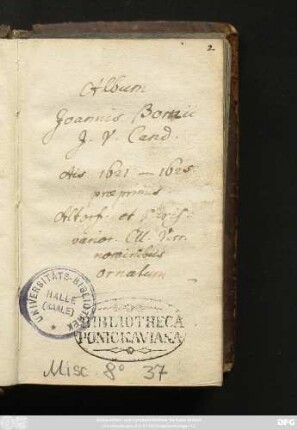 2
Album
Joannis Bornii
J. V. Cand.
Ais 1621 – 1625.
præprimis
Altorf. et Paris.
varior. Cll. Vir.
nominibus
ornatum
UNIVERSITÄTS-BIBLIOTHEK
HALLE
(SAALE)
BIBLIOTHECA
PONICKAVIANA
Misc. 8° 37
DFG